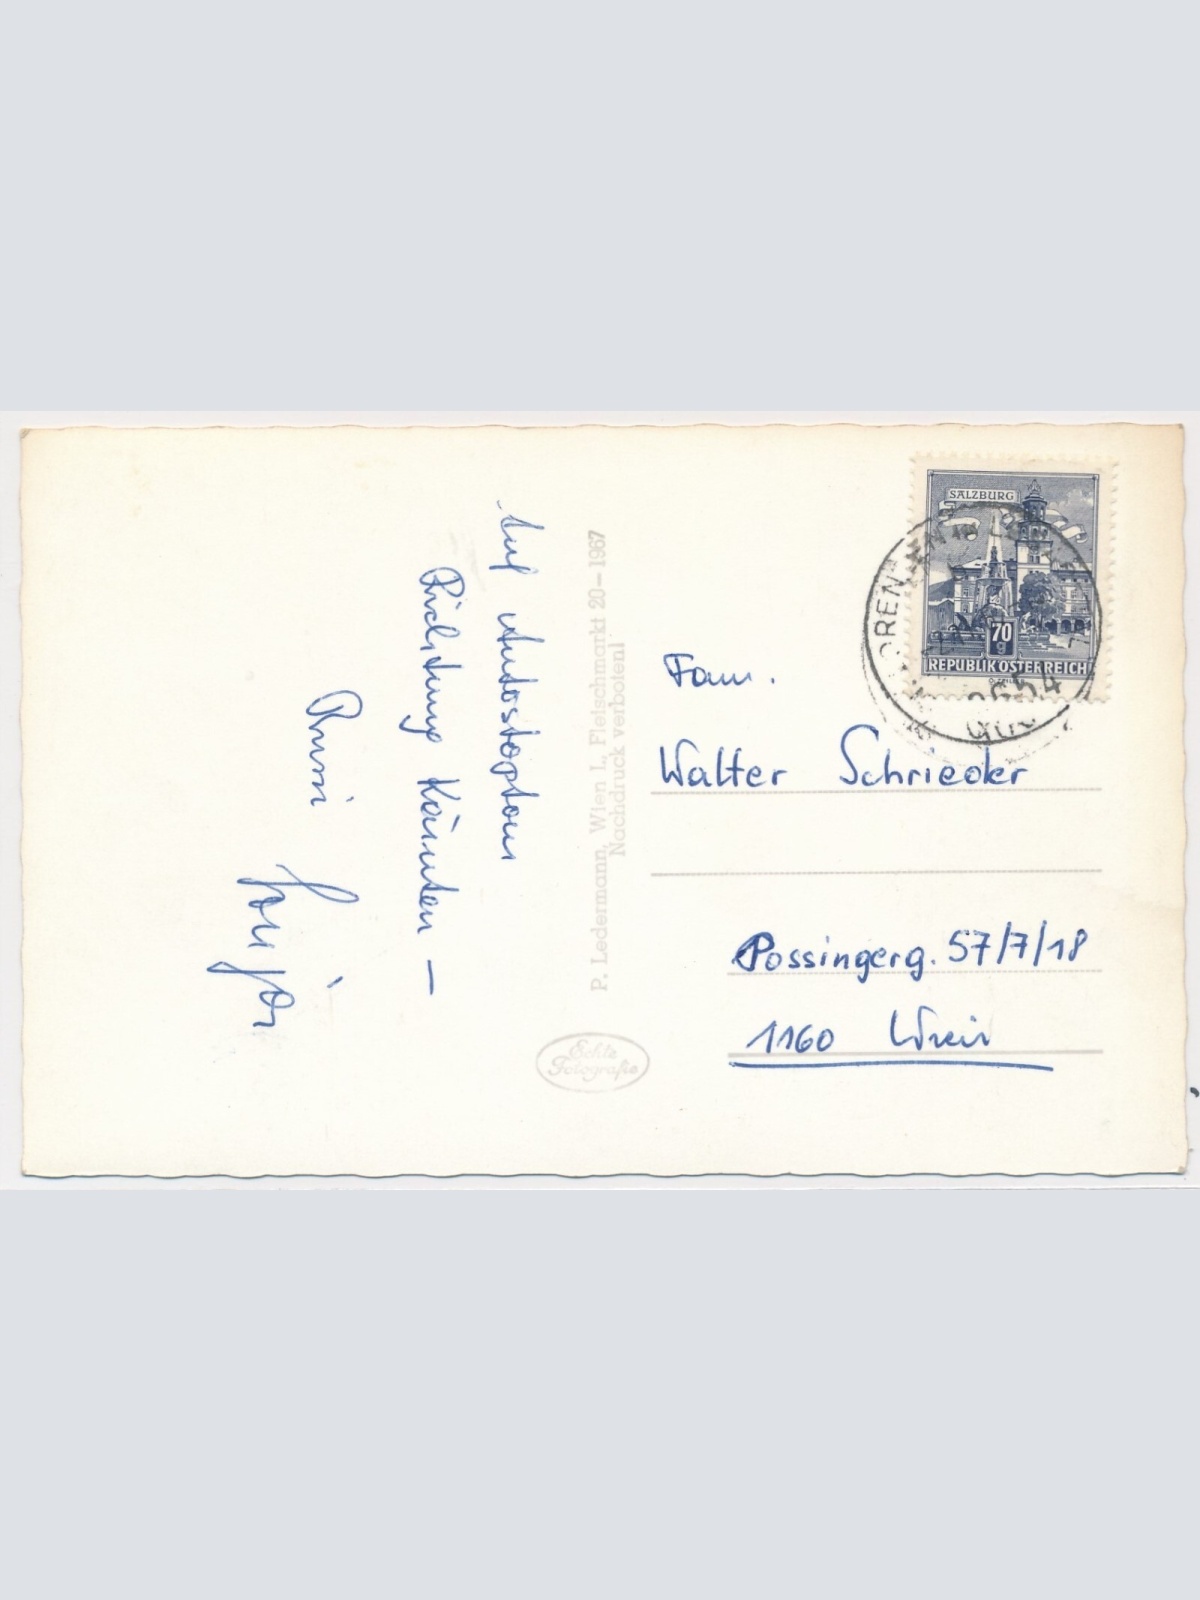 Auf Autostoptour
Richtung Kärnten —
P. Ledermann, Wien I., Fleischmarkt 20 – 1967
Nachdruck verboten!
Echte
Fotografie
SALZBURG
70
g
REPUBLIK ÖSTERREICH
Fam.
Walter Schrieder
Possingerg. 57/7/18
1160 Wien